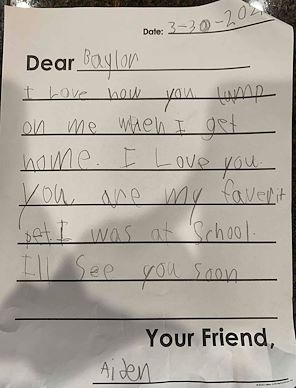 Date: 3-30-202
Dear Baylor
I Love how you Jump
on me when I get
home. I Love you.
You are my faverit
pet. I was at School.
I'll See you soon
Your Friend,
Aiden